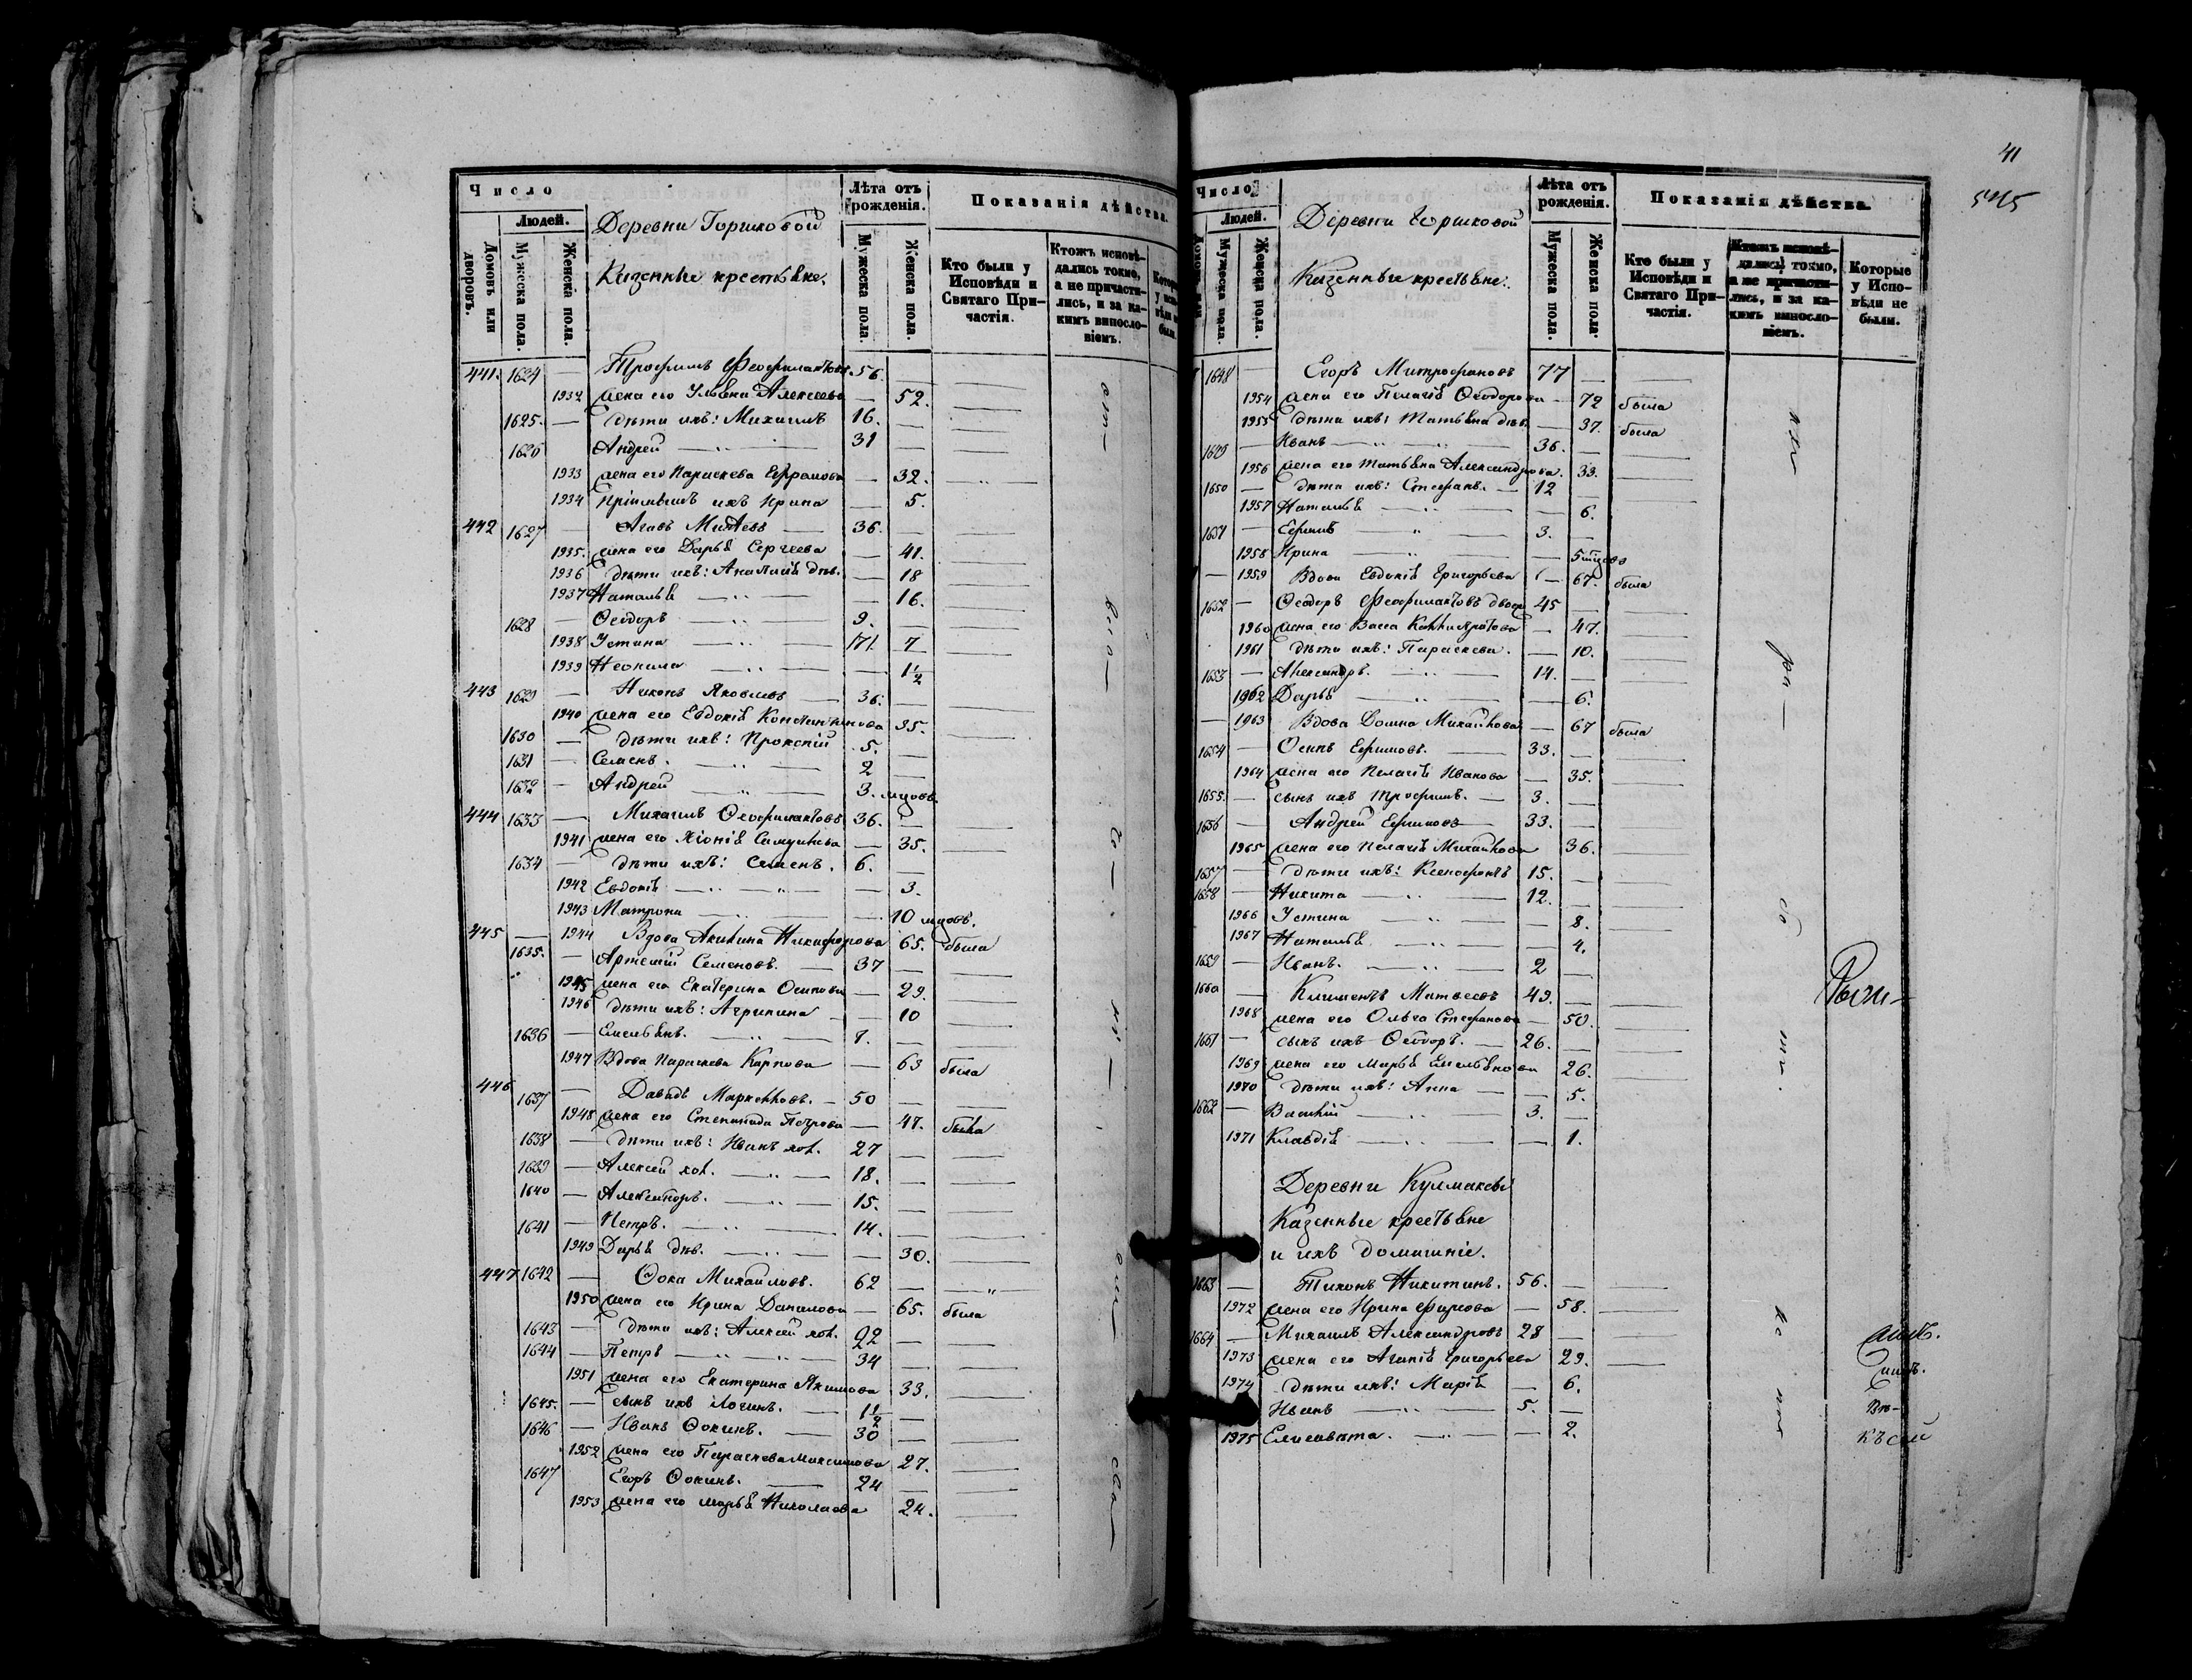 Число
Людей.
Домовъ или дворовъ.
Мужеска пола.
Женска пола.
Деревни Горшковой
Казенные крестьяне.
Лѣта отъ рожденія.
Мужеска пола.
Женска пола.
Показанія дѣйства.
Кто были у Исповѣди и Святаго При-частія.
Ктожъ исповѣ-дались токмо, а не причасти-лись, и за ка-кимъ винословіемъ.
441. 1624 — Трофимъ Феофилактовъ 56. —
1932 жена его Ульяна Алексеева — 52.
1625. — дѣти ихъ: Михаилъ 16. —
1626 Андрей 31 —
1933 жена его Параскева Ефремова — 32.
1934 Пріимышъ ихъ Ирина — 5.
442 1627 — Агавъ 36. —
1935. жена его Дарья Сергеева — 41.
1936 дѣти ихъ: дѣв. — 18
1937 Наталья — 16.
1628 — Ѳеодоръ 9. —
1938 Устина 7
1939 Неонила — 1½
443 1629 — Никонъ Яковлевъ 36. —
1940 жена его Евдокія Константинова 35.
1630 — дѣти ихъ: Прокопій 5. —
1631 — Семенъ. 2 —
1632 — Андрей 3. мцовъ.
444 1633 — Михаилъ Ѳеофилактовъ 36. —
1941 жена его Хіонія Самуилова — 35.
1634 — дѣти ихъ: Семенъ. 6. —
1942 Евдокія — 3.
1943 Матрона — 10 мцовъ.
445 — 1944 Вдова Акилина Никифорова 65. была
1635. — Артемій Семеновъ. 37 —
1945 жена его Екатерина Осипова — 29.
1946 дѣти ихъ: Агрипина — 10
1636 — Емельянъ.
1947 Вдова Параскева Карпова — 63 была
446 1637 — Давидъ Маркелловъ. 50 —
1948 жена его Степанида Петрова — 47. была
1638 — дѣти ихъ: Иванъ хол. 27 —
1639 — Алексей хол. 18. —
1640 — Александръ. 15. —
1641 — Петръ. 14. —
1949 Дарья дѣв. — 30.
447 1642 — Ѳока Михайловъ. 62 —
1950 жена его Ирина Данилова — 65. была
1643 — дѣти ихъ: Алексей хол. 22 —
1644 — Петръ 34 —
1951 жена его Екатерина Якимова 33.
1645. — сынъ ихъ Логинъ. 1½ —
1646 — Иванъ Ѳокинъ. 30 —
1952 жена его Параскева Максимова 27.
1647 Егоръ Ѳокинъ. 24 —
1953 жена его Марья Николаева 24.
41
545
Число
Людей.
Мужеска пола.
Женска пола.
Деревни Горшковой
Казенные крестьяне.
Лѣта отъ рожденія.
Мужеска пола.
Женска пола.
Показанія дѣйства.
Кто были у Исповѣди и Святаго При-частія.
Ктожъ исповѣ-дались токмо, а не причасти-лись, и за ка-кимъ винословіемъ.
Которые у Испо-вѣди не были.
1648 — Егоръ Митрофановъ 77 —
1954 жена его Пелагія Ѳеодорова — 72 была
1955 дѣти ихъ: Татьяна дѣв. — 37. была
1649 — Иванъ 36. —
1956 жена его Татьяна Александрова. 33.
1650 — дѣти ихъ: Стефанъ. 12 —
1957 Наталья — 6.
1651 — Ефимъ 3. —
1958 Ирина — 5 мцовъ
— 1959 Вдова Евдокія Григорьева — 67. была
1652 — Ѳеодоръ Феофилактовъ 45 —
1960 жена его Васса — 47.
1961 дѣти ихъ: Параскева. — 10.
1653 — Александръ. 14. —
1962 Дарья — 6.
— 1963 Вдова Домна Михайлова — 67 была
1654 — Осипъ Ефимовъ. 33. —
1964 жена его Пелагія Иванова — 35.
1655. — сынъ ихъ Трофимъ. 3. —
1656 — Андрей Ефимовъ 33. —
1965 жена его Пелагія Михайлова 36.
1657 — дѣти ихъ: Ксенофонтъ 15. —
1658 — Никита 12. —
1966 Устина — 8.
1967 Наталья — 4.
1659 — Иванъ. 2 —
1660 — Климентъ Матвеевъ 49. —
1968 жена его Ольга Стефанова — 50.
1661 — сынъ ихъ Ѳеодоръ. 26. —
1969 жена его Марья Емельянова 26.
1970 дѣти ихъ: Анна — 5.
1662 — Василій 3. —
1971 Клавдія — 1.
Деревни Кулмаковы
Казенные крестьяне
и ихъ домашніе.
1663 — Тихонъ Никитинъ. 56. —
1972 жена его Ирина Фирсова — 58.
1664 — Михаилъ Александровъ 28 —
1973 жена его Агапія Григорьева 29.
1974 дѣти ихъ: Марія — 6.
Иванъ 5. —
1975 Елисавета. — 2.